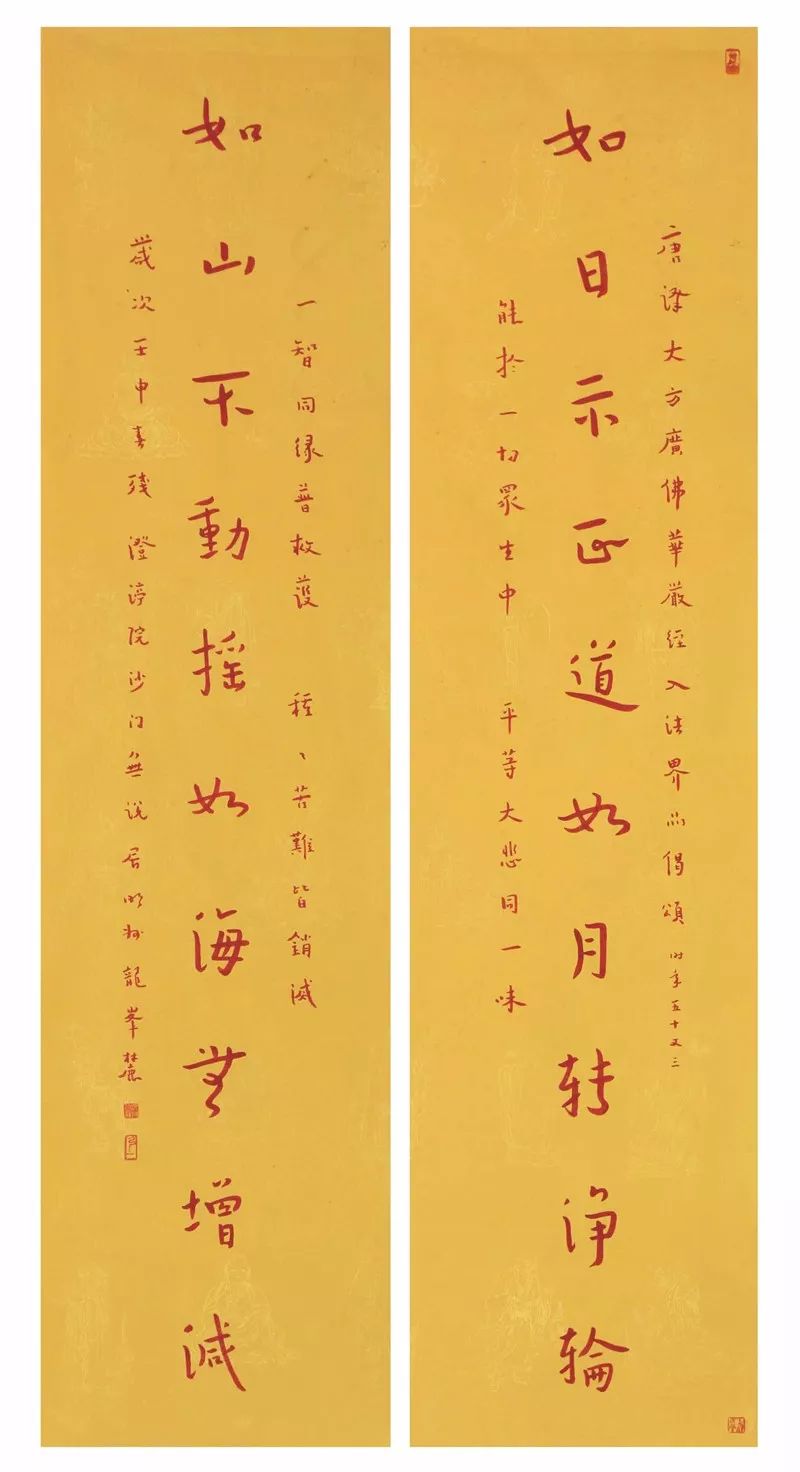 唐譯大方廣佛華嚴經入法界品偈頌 时年五十又三
如日示正道如月转淨輪
能於一切眾生中 平等大悲同一味
一智同缘普救護 種々苦難皆銷滅
如山不動摇如海無增減
歲次壬申春殘 澄渟院沙门無说居明州龍峯麓